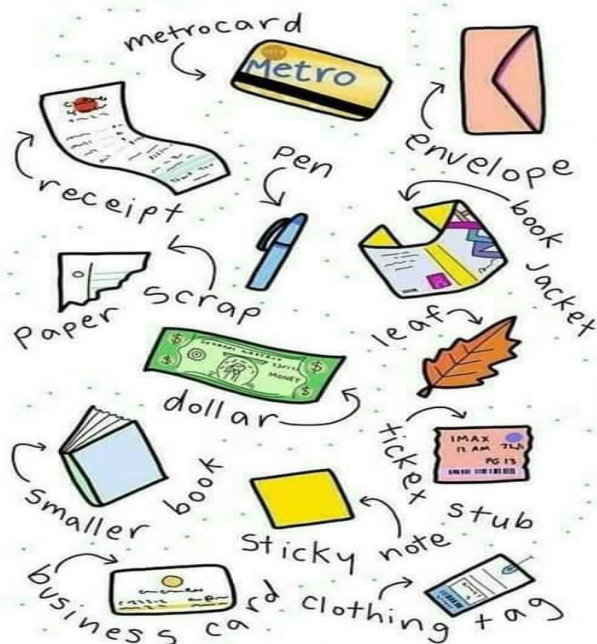 metrocard
Metro
envelope
receipt
pen
book jacket
paper scrap
leaf
dollar
MONEY
ticket stub
IMAX
12 AM
PG 13
smaller book
sticky note
business card
clothing tag